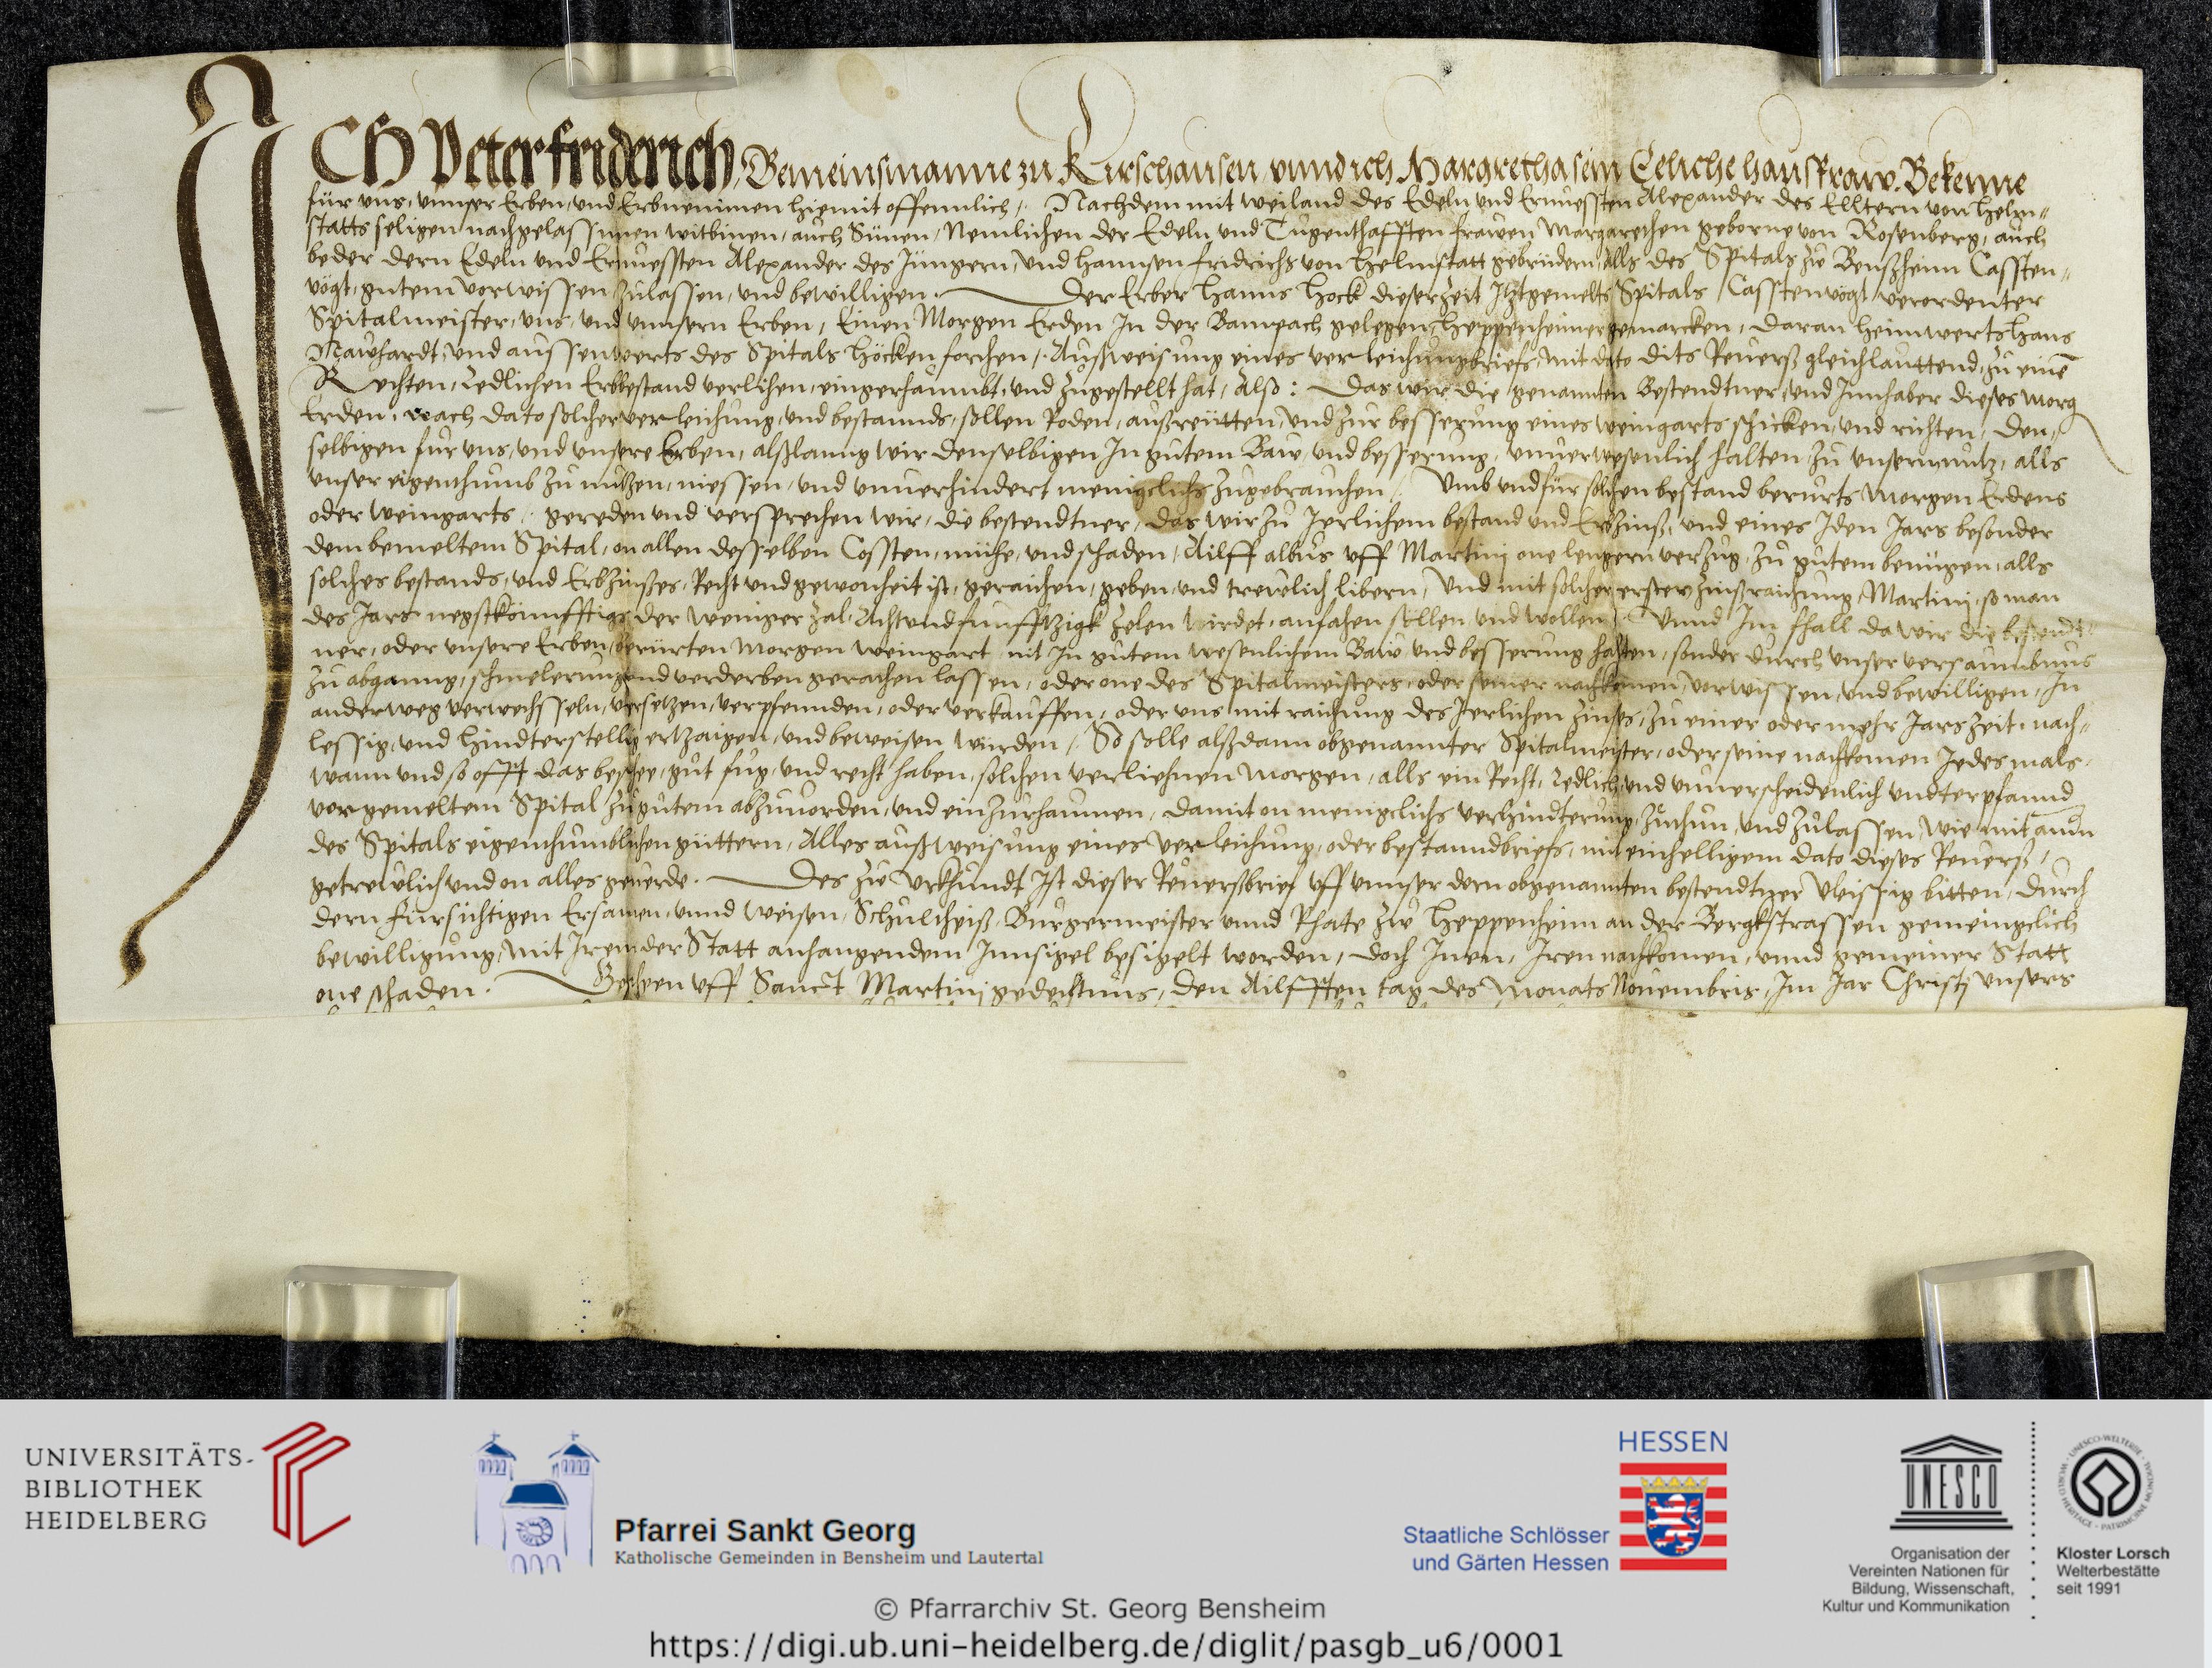 ICH Peter friderich, Gemeinsmanne zu Kirschausen, vnnd ich Margretha sein Eeliche hausfraw. Bekenne
für vns, vnnser Erben, vnd Erbnemmen hiemit offennlich, Nachdem mit weiland des Edeln vnd Ernuessten Alexander des Elltern von Helm-
statts seligen nachgelassnen witbinen, auch Sünen, Nemlichen der Edeln vnd Tugenthafften frawen Margarethen geborne von Rosenberg, auch
beder dern Edeln vnd Ernuessten Alexander des Jüngern, vnd Hannsen fridrichs von Helmstatt gebrüdern, Alls des Spitals zu Bensheim Cassten-
vögt, gutem vorwissen zulassen, vnd bewilligen. Der Erber Hanns Hock dieser zeit Itztgemelts Spitals Casstenvögt verordenter
Spitalmeister, vns, vnd vnnsern Erben, Einen Morgen Erden In der gelegen, Heppenheimer gemarcken, daran heimwerts Hans
vnd aussenwerts des Spitals höcken forchen, Außweisung eines verleichungbriefs, mit dato dits Reuerß gleichlauttend, zu einē
Rechten, Redlichen Erbbestand verlihen, eingerhaumbt, vnd zugestellt hat, Alß: Das wir die genannten Bestendtner, vnd Innhaber dieses morg
Erden, nach dato solcher verleichung, vnd bestannds, sollen Roden, außreutten, vnd zur besserung eines weingarts schicken, vnd richten, Den-
selbigen fur vns, vnd vnsere Erben, alßlanng wir denselbigen In gutem Baw, vnd besserung, vnuerwesenlich halten, zu vnserm nutz, alls
vnser eigenthumb zu nutzen, niessen, vnd vnuerhindert meniglichs zugebrauchen. Vmb vnd für solchen bestand berurts morgen Erdens
oder weingarts, gereden vnd versprechen wir, die bestendtner, das wir zu Jerlichem bestand vnd Erbzinß, vnd eines Jden Jars besonder
dem bemeltem Spital, on allen desselben Cossten, mühe, vnd schaden, Ailff albus vff Martinj one lengern verzug, zu gutem benügen, alls
solches bestands, vnd Erbzinßes, Recht vnd gewonheit ist, geraichen, geben, vnd trewlich libern, Vnd mit solcher erster zinßraichung, Martinj, so man
des Jars negstkünfftigs der weniger zal, Achtundfunfftzigk zelen wirdet, anfahen sollen, vnd wollen. Vnnd Im fhall da wir die bestendt-
ner, oder vnsere Erben, berürten morgen weingart nit In gutem wesenlichem Baw, vnd besserung halten, sonder durch vnser versaumbnus
zu abganng, schmelerung vnd verderben gerathen lassen, oder one des Spitalmeisters, oder seiner nachkomen, vorwissen, vnd bewilligen, In
anderweg verwechsseln, versetzen, verpfennden, oder verkauffen, oder vns mit raichung des Jerlichen zinses, zu einer oder mehr Jars zeit, nach-
lessig, vnd hindterstellig ertzaigen, vnd beweisen wurden, So solle alßdann obgenannter Spitalmeister, oder seine nachkomen Jedesmals,
wann vnd so offt das beschee, gut fug, vnd recht haben, solchen verliehnen morgen, alls ein Recht, Redlich, vnd vnuerscheidenlich vndterpfannd
vorgemeltem Spital zu gutem abzuuordern, vnd einzurhaumen, damit on menigclichs verhindterung, zuthun, vnd zulassen, wie mit andn
des Spitals eigenthumblichen güttern, Alles außweisung eines verleichung, oder bestanndbriefs, mit einhelligem dato dieses Reuerß,
getrewlich vnd on alles geuerde. Des zu Vrkhundt Ist dieser Reuerßbrief vff vnnser dern obgenannten bestendtner vleissig bitten, durch
dern fürsichtigen Ersamen, vnnd weisen, Schultheiß, Burgermeister vnnd Rhate zu Heppenheim an der Bergkstrassen gemeingclich
bewilligung, mit Irem der Statt anhangendem Innsigel besigelt worden, doch Inen, Iren nachkomen, vnnd gemeiner Statt
one schaden. Gescheen vff Sanct Martinj gedechtnus, den Ailfften tag des Monats Nouembris, Im Jar Christj vnsers
UNIVERSITÄTS-
BIBLIOTHEK
HEIDELBERG
Pfarrei Sankt Georg
Katholische Gemeinden in Bensheim und Lautertal
HESSEN
Staatliche Schlösser
und Gärten Hessen
UNESCO
Organisation der
Vereinten Nationen für
Bildung, Wissenschaft,
Kultur und Kommunikation
Kloster Lorsch
Welterbestätte
seit 1991
© Pfarrarchiv St. Georg Bensheim
https://digi.ub.uni-heidelberg.de/diglit/pasgb_u6/0001